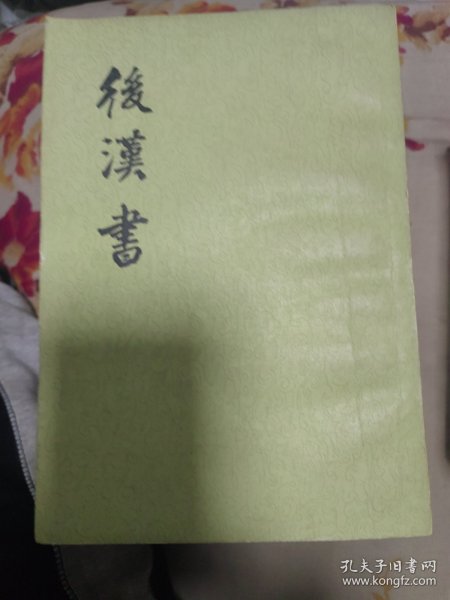 後漢書
孔夫子旧书网
www.kongfz.com